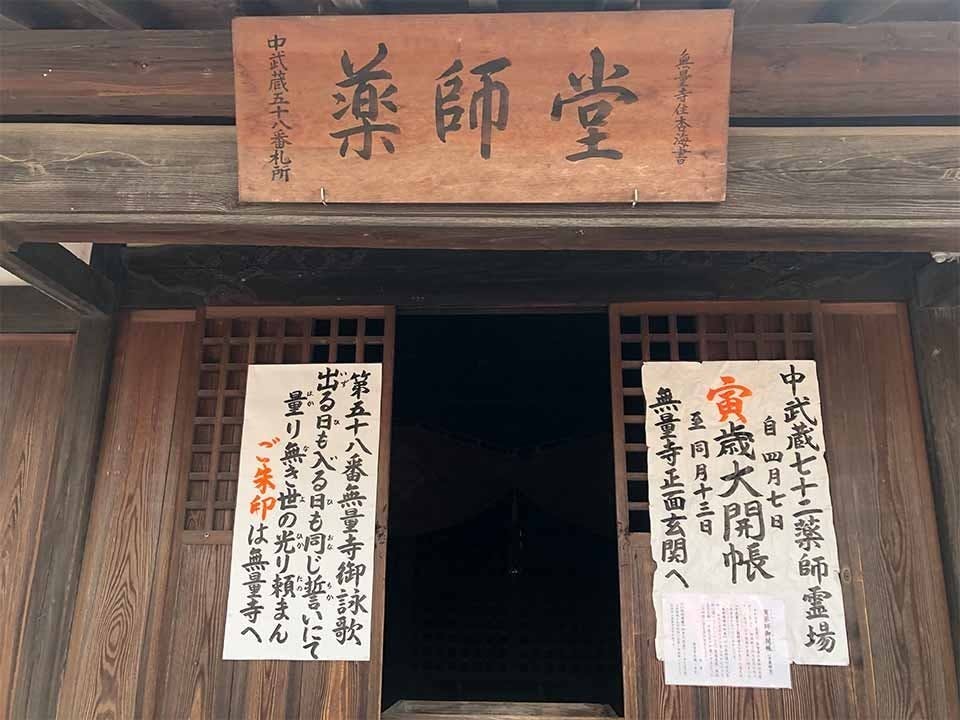 無量寺住杏海書
薬師堂
中武蔵五十八番札所
中武蔵七十二薬師霊場
自 四月七日
寅歳大開帳
至 同月十三日
無量寺正面玄関へ
第五十八番無量寺御詠歌
出る日も入る日も同じ誓いにて
量り無き世の光り頼まん
ご朱印は無量寺へ